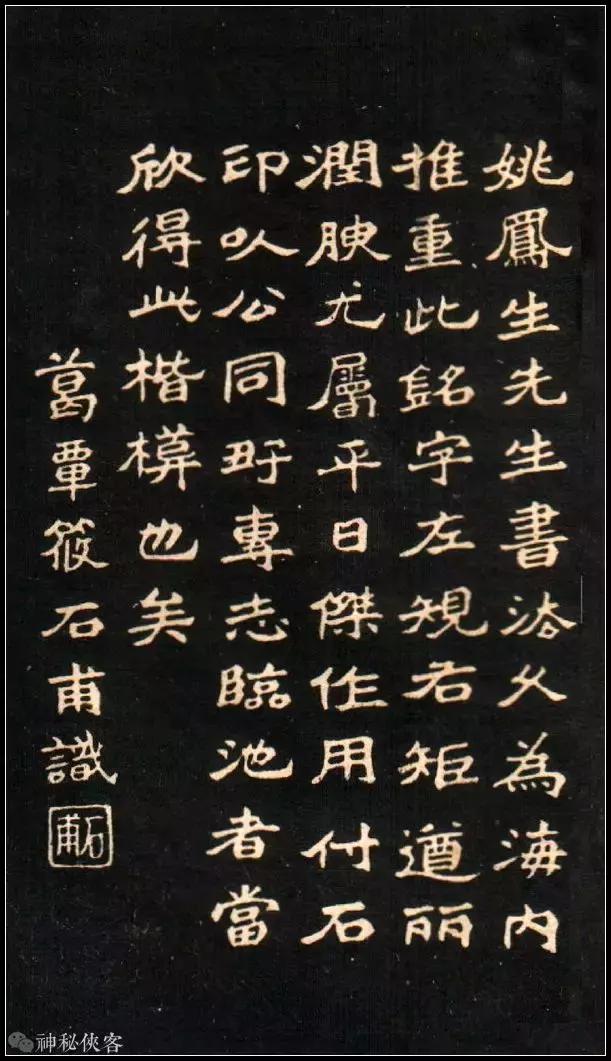 姚鳳生先生書法久為海内
推重此銘字左規右矩遒丽
潤腴尤屬平日傑作用付石
印以公同好專志臨池者當
欣得此楷模也矣
葛覃筱石甫識
石甫
神秘俠客